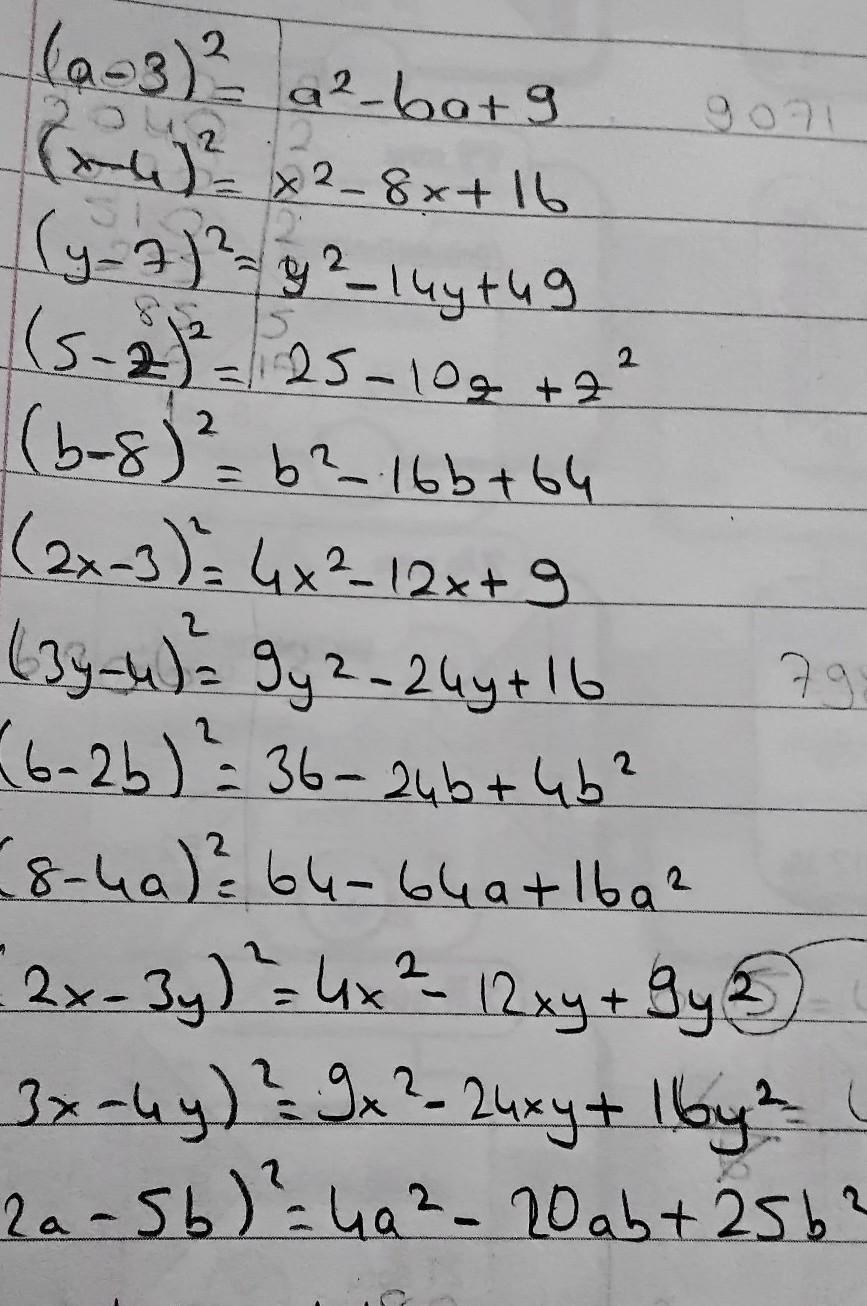 (a-3)² = a²-6a+9
(x-4)² = x²-8x+16
(y-7)² = y²-14y+49
(5-z)² = 25-10z+z²
(b-8)² = b²-16b+64
(2x-3)² = 4x²-12x+9
(3y-4)² = 9y²-24y+16
(6-2b)² = 36-24b+4b²
(8-4a)² = 64-64a+16a²
2x-3y)² = 4x²-12xy+9y²
3x-4y)² = 9x²-24xy+16y² =
2a-5b)² = 4a²-20ab+25b²